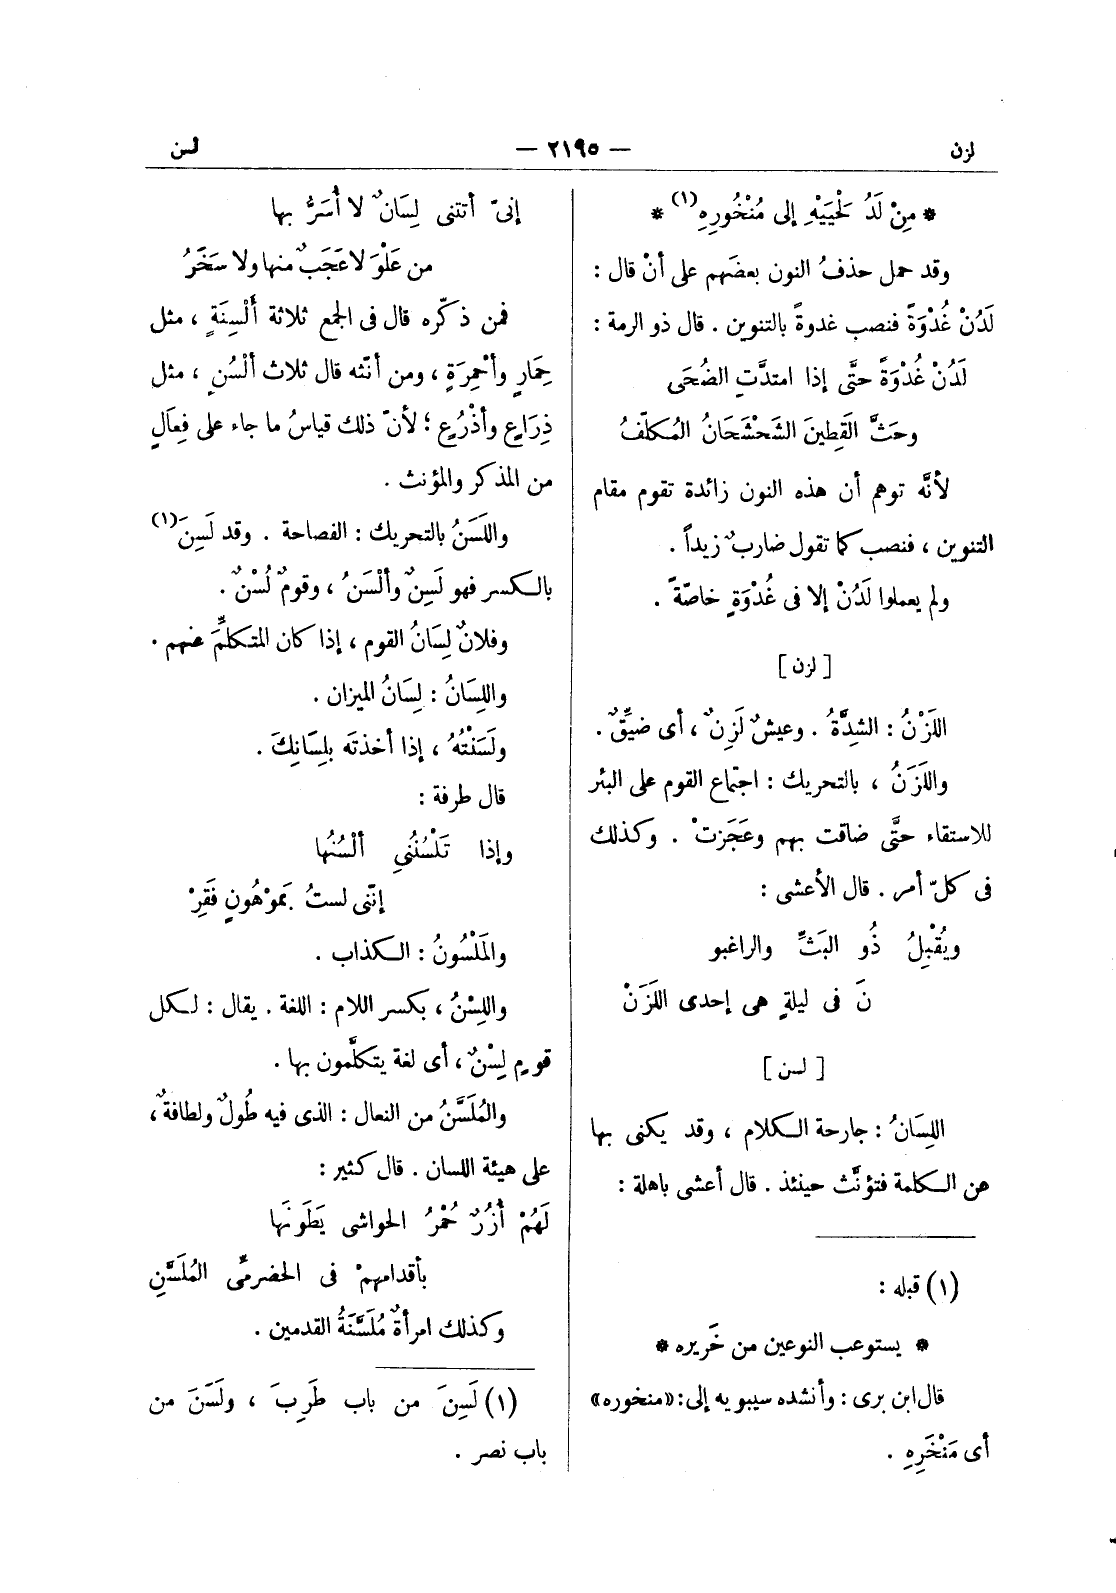 لزن — ٢١٩٥ — لسن
* مِنْ لَدُ لَحْيَيْهِ إلى مُنْخُورِهِ (١) *
وقد حمل حذفُ النون بعضَهم على أنْ قال :
لَدُنْ غُدْوَةً فنصب غدوةً بالتنوين . قال ذو الرمة :
لَدُنْ غُدْوَةً حتَّى إذا امتدَّتِ الضُحَى
وحَثَّ القَطِينَ الشَحْشَحَانُ المُكلَّفُ
لأنَّه توهم أن هذه النون زائدة تقوم مقام
التنوين ، فنصب كما تقول ضاربٌ زيداً .
ولم يعملوا لَدُنْ إلا فى غُدْوَةٍ خاصّةً .
[ لزن ]
اللَزْنُ : الشِدَّةُ . وعيشٌ لَزِنٌ ، أى ضيِّقٌ .
واللَزَنُ ، بالتحريك : اجتماع القوم على البئر
للاستقاء حتَّى ضاقت بهم وعَجَزتْ . وكذلك
فى كلّ أمر . قال الأعشى :
ويُقْبِلُ ذُو البَثِّ والراغبو
نَ فى ليلةٍ هى إحدى اللَزَنْ
[ لسن ]
اللِسَانُ : جارحة الكلام ، وقد يكنى بها
عن الكلمة فتؤنَّث حينئذ . قال أعشى باهلة :
(١) قبله :
* يستوعب النوعين من خَريره *
قال ابن برى : وأنشده سيبويه إلى: «منخوره»
أى مَنْخَرِهِ .
إنىّ أتتنى لِسَانٌ لا أُسَرُّ بها
من عَلْوَ لا عَجَبٌ منها ولا سَخَرُ
فمن ذكّره قال فى الجمع ثلاثة أَلْسِنَةٍ ، مثل
حِمَارٍ وأَحْمِرَةٍ ، ومن أنّثه قال ثلاث ألْسُنٍ ، مثل
ذِرَاعٍ وأذْرُعٍ ؛ لأنّ ذلك قياسُ ما جاء على فِعاَلٍ
من المذكر والمؤنث .
واللَسَنُ بالتحريك : الفصاحة . وقد لَسِنَ (١)
بالكسر فهو لَسِنٌ وألْسَنُ ، وقومٌ لُسْنٌ .
وفلانٌ لِسَانُ القوم ، إذا كان المتكلِّمَ عنهم .
واللِسَانُ : لِسَانُ الميزان .
ولَسَنْتُهُ ، إذا أخذتَه بلِسَانِكَ .
قال طرفة :
وإذا تَلْسُنُنِي ألْسُنُها
إنّنى لستُ بموْهُونٍ فَقِرْ
والمَلْسُونُ : الكذاب .
واللِسْنُ ، بكسر اللام : اللغة . يقال : لكل
قومٍ لِسْنٌ ، أى لغة يتكلَّمون بها .
والمُلَسَّنُ من النعال : الذى فيه طُولٌ ولطافةٌ ،
على هيئة اللسان . قال كثير :
لَهُمْ أُزُرٌ حُمْرُ الحواشى يَطَونَها
بأقدامهمْ فى الحضرمىِّ المُلَسَّنِ
وكذلك امرأةٌ مُلَسَّنَةُ القدمين .
(١) لَسِنَ من باب طَرِبَ ، ولَسَنَ من
باب نصر .